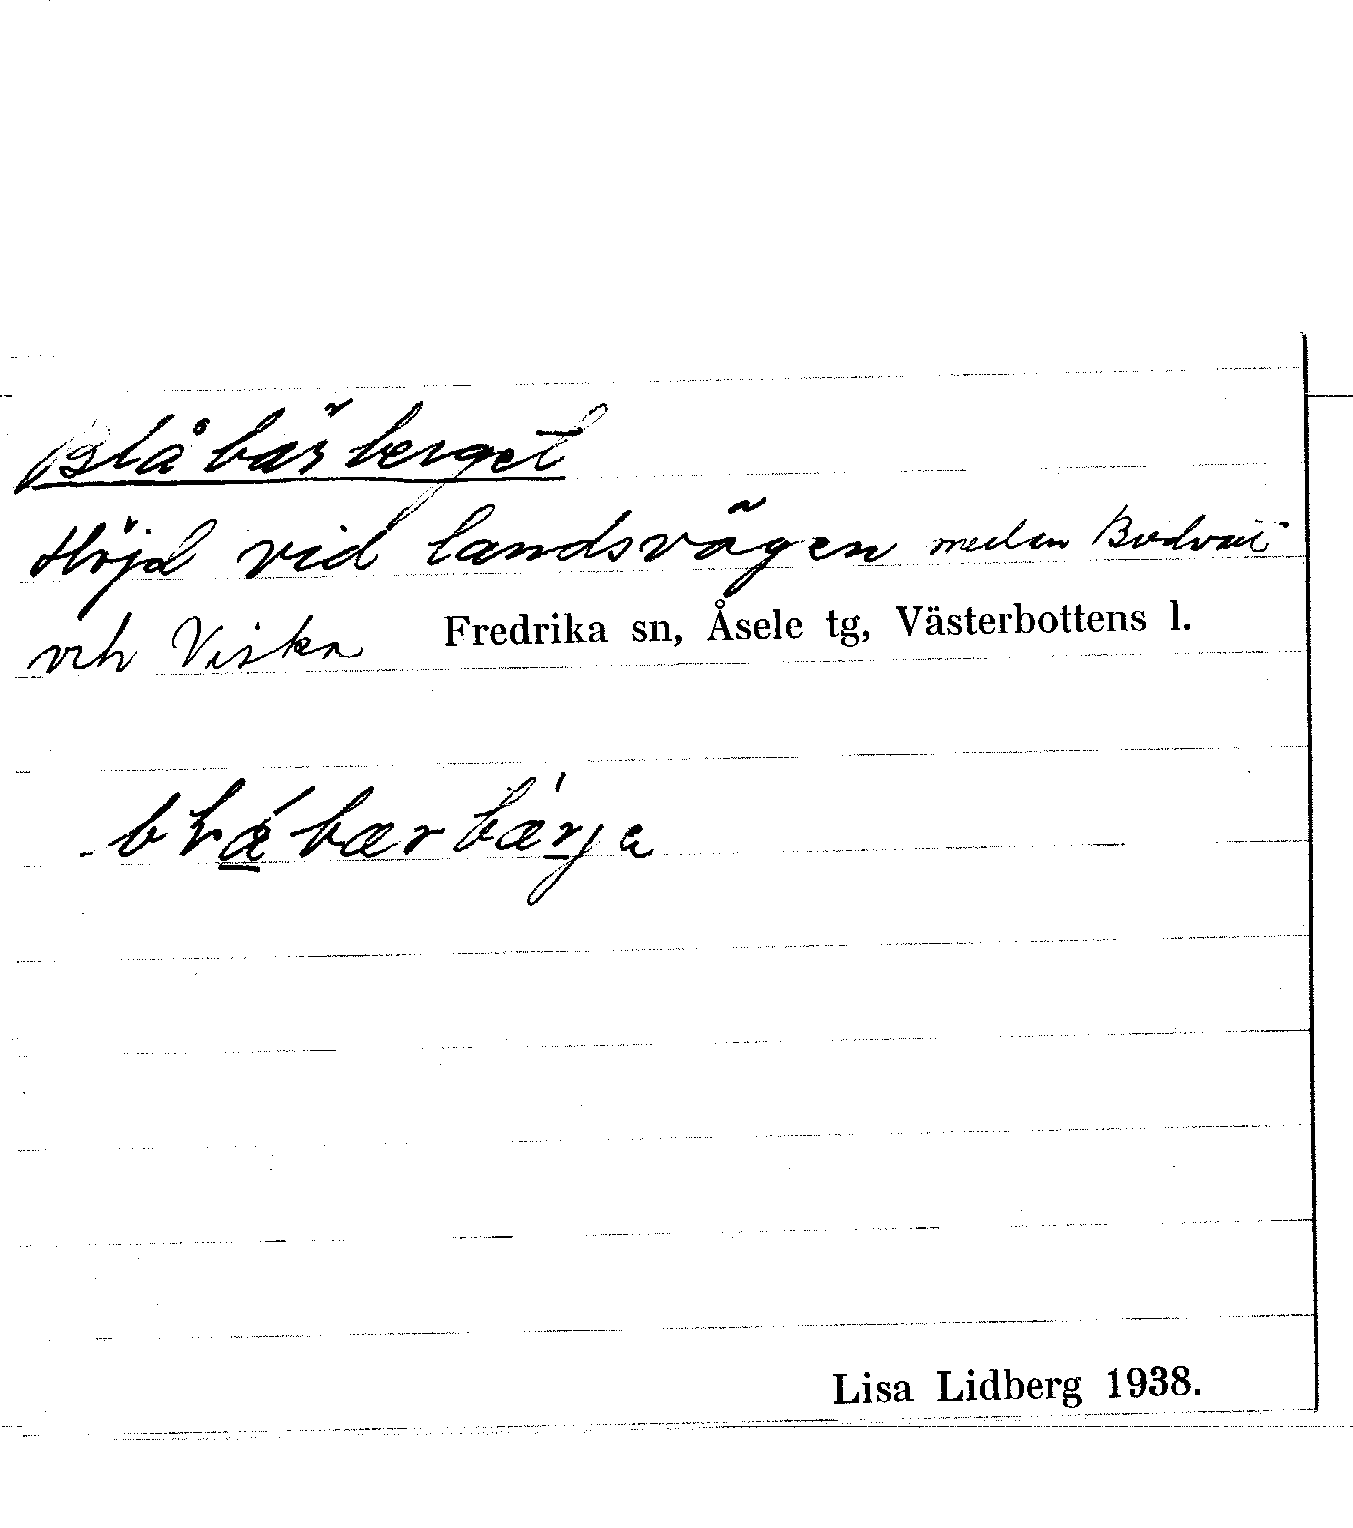 Blåbärberget
Höjd vid landsvägen mellan
och Viska Fredrika sn, Åsele tg, Västerbottens l.
Lisa Lidberg 1938.